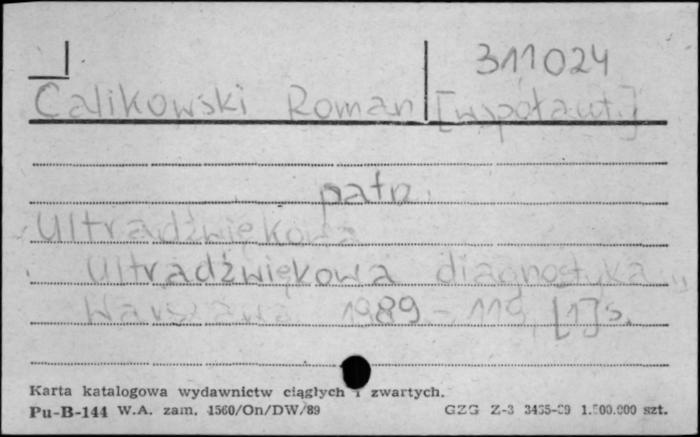 311024
Calikowski Roman [współaut.]
patrz
Ultradźwiękowa
Ultradźwiękowa diagnostyka...
Warszawa 1989. - 119, [1] s.
Karta katalogowa wydawnictw ciągłych i zwartych.
Pu-B-144 W.A. zam. 1560/On/DW/89 GZG Z-3 3435-89 1.500.000 szt.